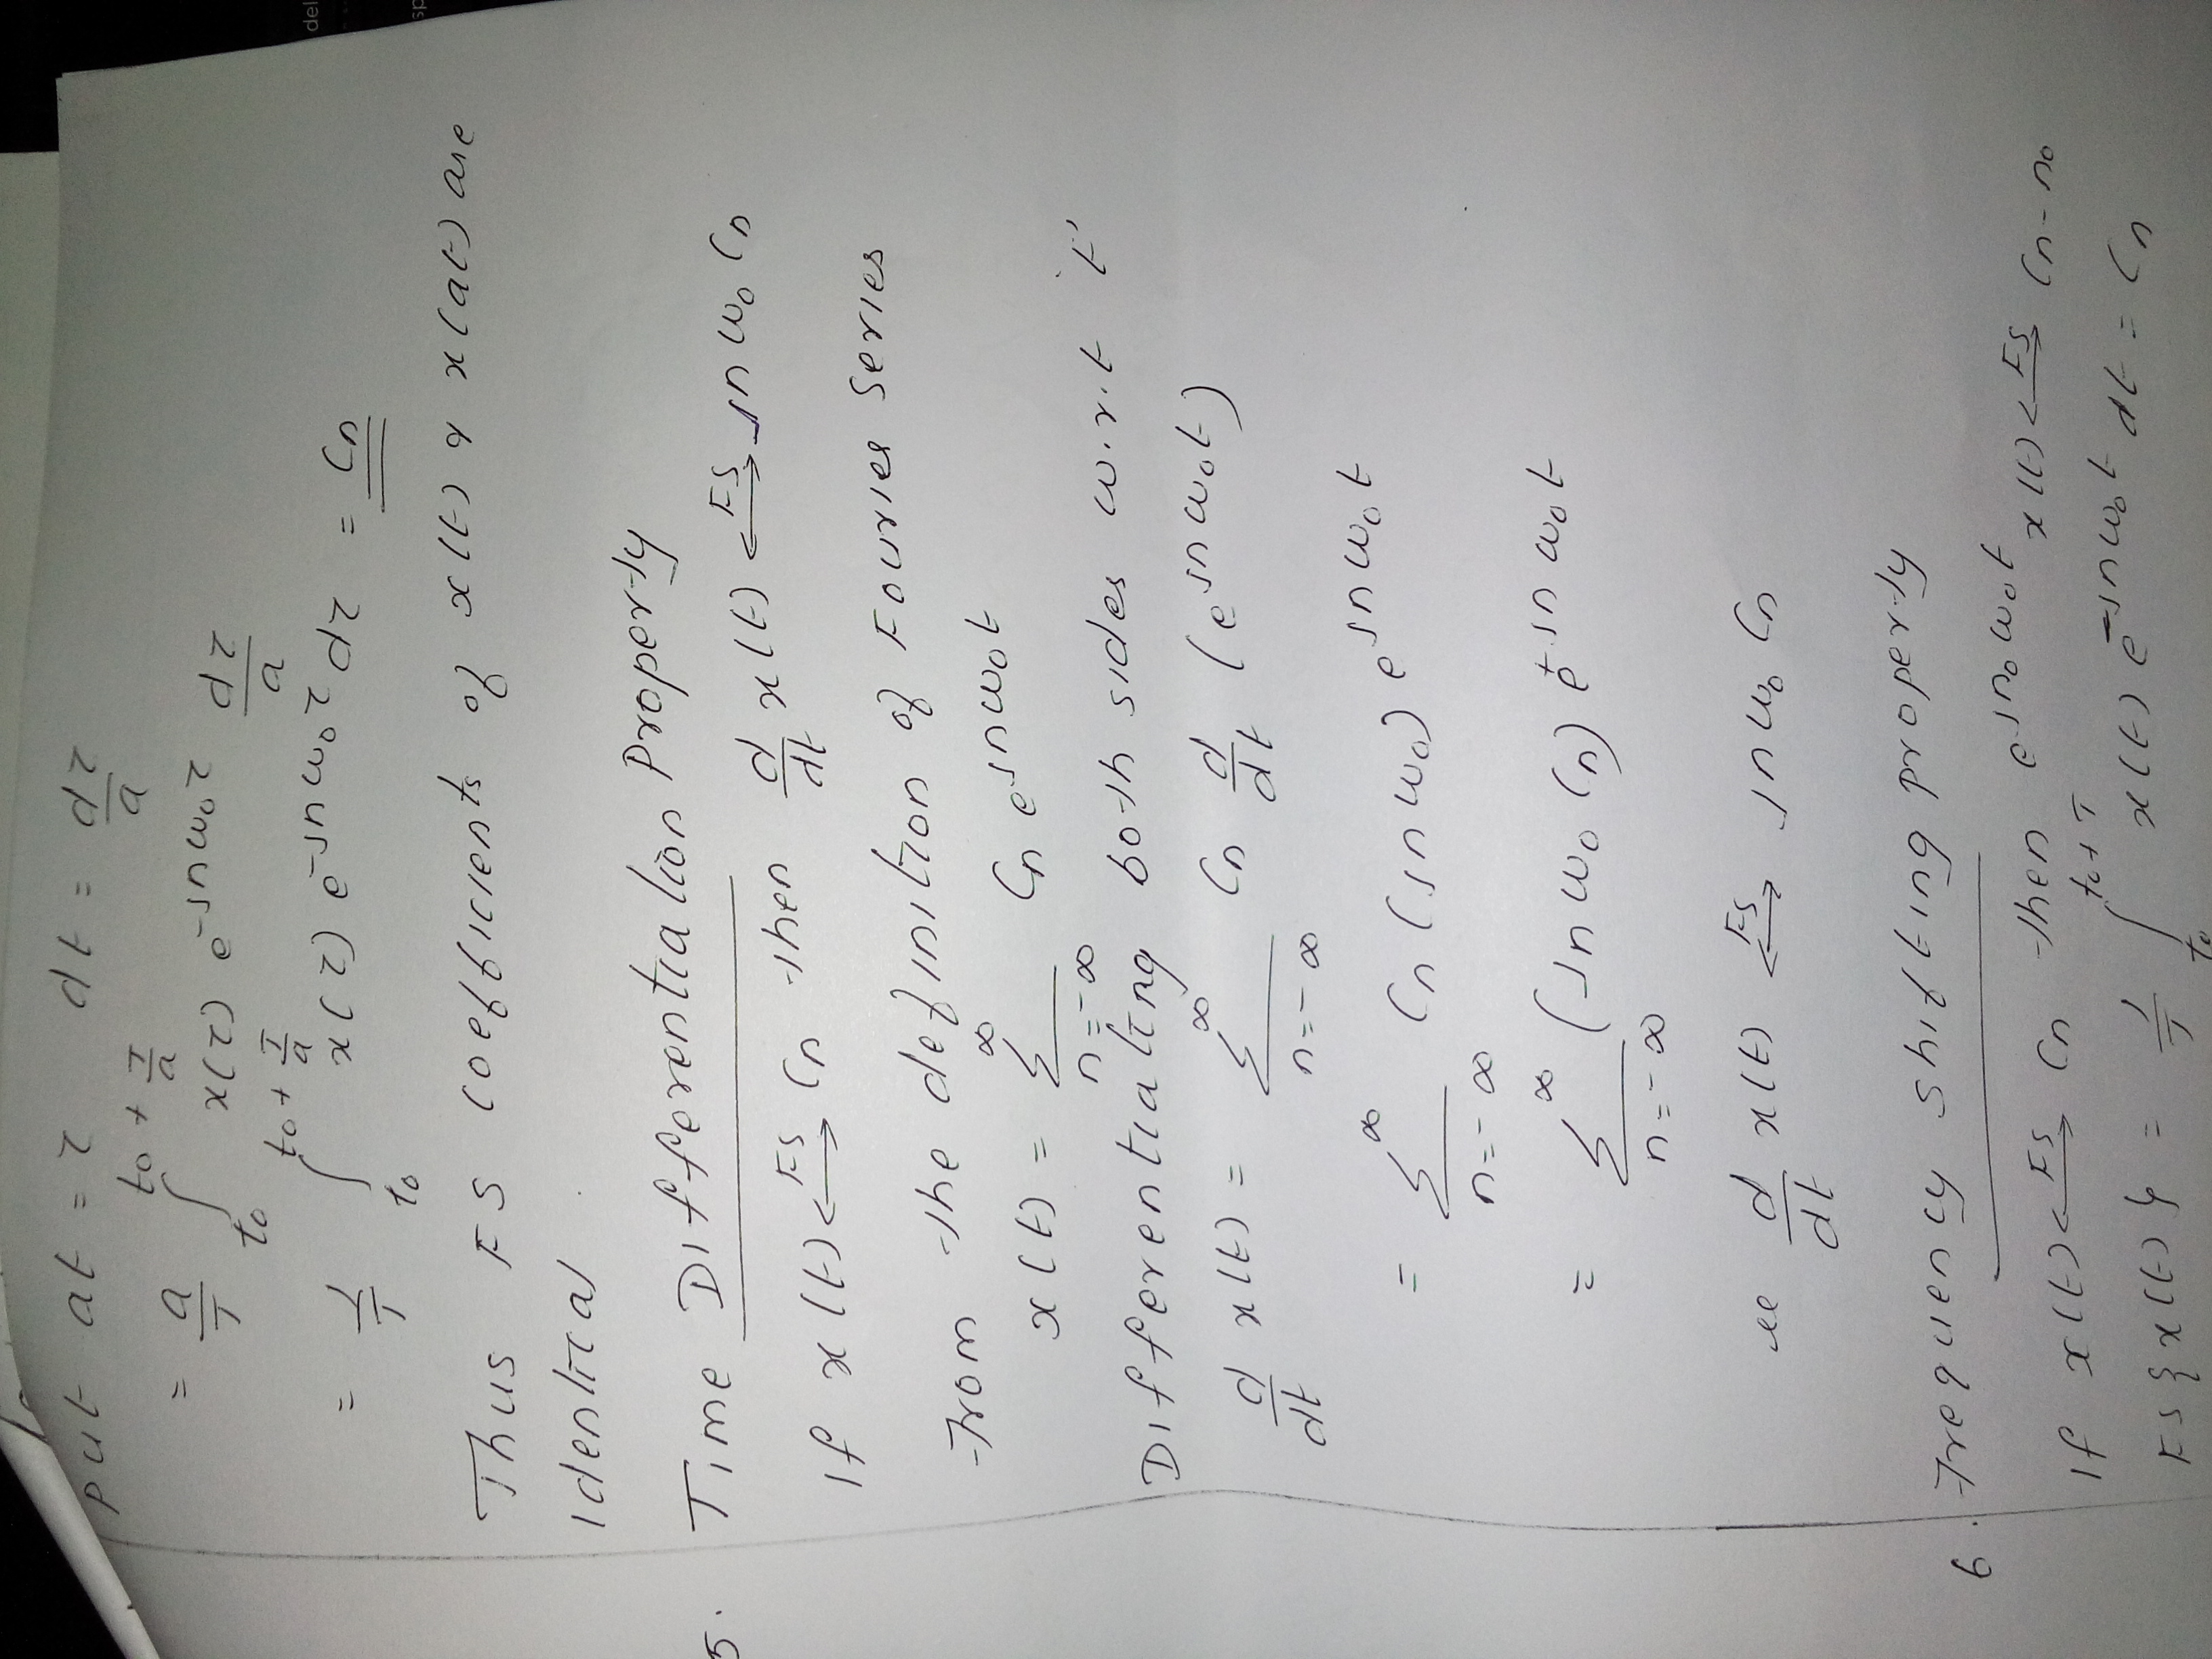 put at = τ dt = dτ/a
= a/T ∫_{t0}^{t0 + T/a} x(τ) e^{-jnω0τ} dτ/a
= 1/T ∫_{t0}^{t0 + T/a} x(τ) e^{-jnω0τ} dτ = Cn
Thus FS coefficients of x(t) & x(at) are
identical
5. Time Differentiation Property
If x(t) <-FS-> Cn then d/dt x(t) <-FS-> jnω0 Cn
From the definition of Fourier Series
x(t) = ∑_{n=-∞}^{∞} Cn e^{jnω0t}
Differentiating both sides w.r.t 't'
d/dt x(t) = ∑_{n=-∞}^{∞} Cn d/dt (e^{jnω0t})
= ∑_{n=-∞}^{∞} Cn (jnω0) e^{jnω0t}
= ∑_{n=-∞}^{∞} (jnω0 Cn) e^{+jnω0t}
ie d/dt x(t) <-FS-> jnω0 Cn
6. Frequency shifting property
If x(t) <-FS-> Cn then e^{jn0ω0t} x(t) <-FS-> Cn-n0
FS{x(t)} = 1/T ∫_{t0}^{t0+T} x(t) e^{-jnω0t} dt = Cn